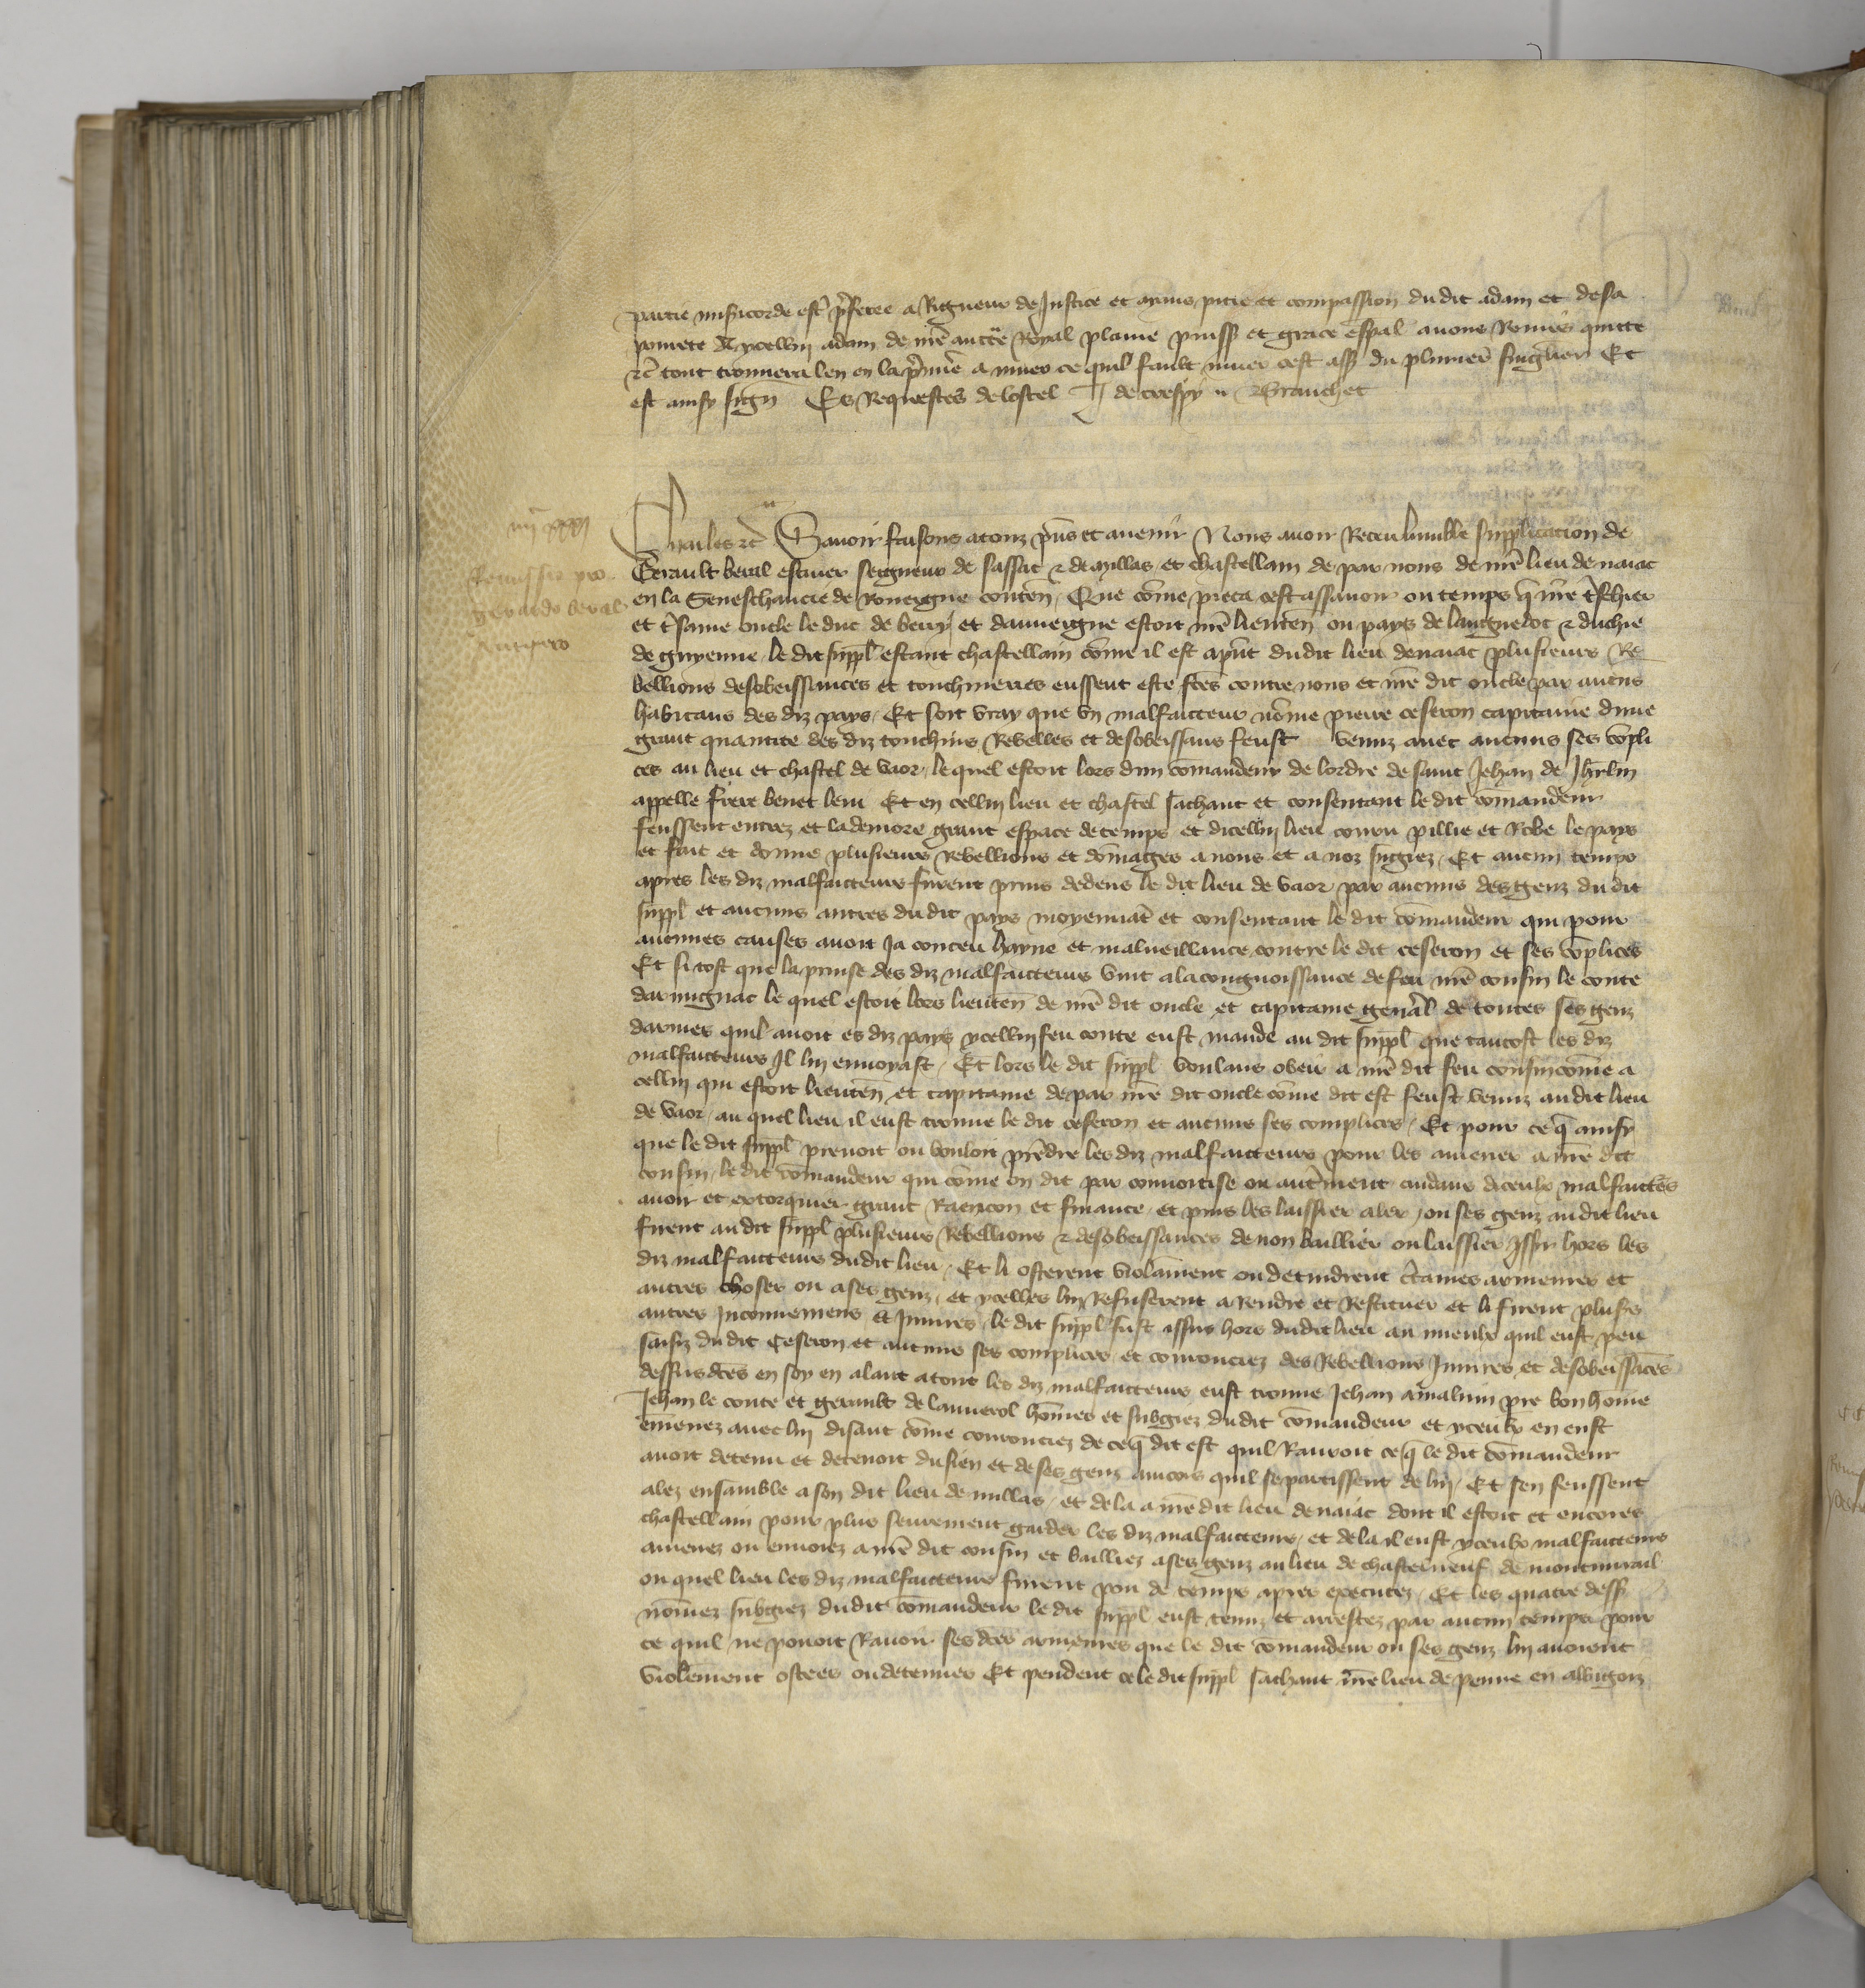 partie misericorde estre preferee a Rigueur de Justice et aians pitie et compassion dudit adam et de sa
povrete A ycelluy adam de nre auctte Royal plaine puiss et grace espal avons Remis quitte
etc tout trouvera len en la premiere a muer ce quil fault muer cest ass du plurier singulier Et
est ainsy sign Es Requestes de lostel J de crespy n Granchet
Charles etc Savoir faisons a touz pns et avenir Nous avoir Receu humble supplicacion de
Gerault beral escuier seigneur de sassac et de millas et chastellain de par nous de nre lieu de naiac
en la Seneschaucie de Rouergue conten Que come pieca cestassavoir ou temps q nre treschier
et tresame oncle le duc de berry et dauvergne estoit nre lieuten ou pays de languedoc et duchie
de guyenne le dit suppl estant chastellain come il est aprnt dudit lieu de naiac plusieurs Re
bellions desobeissances et touchineries eussent este fces contre nous et nre dit oncle par aucuns
habitans des diz pays Et soit vray que un malfaicteur nome pierre ceseron capitaine dune
grant quantite des diz touchins Rebelles et desobeissans feust venuz avec aucuns ses compli
ces au lieu et chastel de vaor le quel estoit lors dun comandeur de lordre de saint Jehan de Jhrlm
appelle frere benet leni Et en celluy lieu et chastel sachant et consentant le dit comandeur
feussent entrez et la demore grant espace de temps et dicelluy lieu couru pillie et Robe le pays
et fait et donne plusieurs Rebellions et domages a nous et a noz subgiez Et aucun temps
apres les diz malfaicteurs furent prins dedens le dit lieu de vaor par aucuns des genz du dit
suppl et aucuns autres du dit pays moyennat et consentant le dit comandeur qui pour
aucunes causes avoit Ja conceu hayne et malveillance contre le dit ceseron et ses complices
Et si tost que la prinse des diz malfaicteurs vint a la congnoissance de feu nre cousin le conte
darmignac le quel estoit lors lieuten de nre dit oncle et capitaine genal de toutes ses genz
darmes quil avoit es diz pays ycelluy feu conte eust mande au dit suppl que tantost les diz
malfaicteurs Il luy envoyast Et lors le dit suppl voulans obeir a nre dit feu cousin come a
celluy qui estoit lieuten et capitaine de par nre dit oncle come dit est feust venuz au dit lieu
de vaor au quel lieu il eust trouve le dit ceseron et aucuns ses complices Et pour ce q ainsy
que le dit suppl prenoit ou vouloit prendre les diz malfaicteurs pour les amener a nre dit
cousin le dit comandeur qui come on dit par convoitise ou autrement cuidans diceulx malfaictes
avoir et extorquier grant Raencon et finance et puis les laissier aler ou ses genz au dit lieu
firent au dit suppl plusieurs Rebellions et desobeissances de non baillier ou laissier Issir hors les
diz malfaicteurs dudit lieu Et li osterent violament ou detindrent certaines armeures et
autres choses ou a ses genz et ycelles luy Refuserent a Rendre et Restituer et li firent plusrs
autres Inconveniens et Injures le dit suppl fust issus hors dudit lieu au mieulx quil eust peu
saisiz du dit Ceseron et aucuns ses complices et courouciez des Rebellions Injures et desobeissaces
dessusdces en soy en alant a tout les diz malfaicteurs eust trouve Jehan amalvin pre bonhome
Jehan le conte et gerault de lauverol homes et subgiez du dit comandeur et yceulx en eust
emenez avec luy disant come courouciez de ce q dit est quil Rauroit ce q le dit comandeur
avoit detenu et detenoit du sien et de ses genz aincois quil se partissent de luy Et sen feussent
alez ensamble a son dit lieu de millas et de la a nre dit lieu de naiac dont il estoit et encores
chastellain pour plus seurement garder les diz malfaicteurs et de la il eust yceulx malfaicteurs
amenez ou envoiez a nre dit cousin et bailliez a ses genz au lieu de chastelneuf de montmirail
ou quel lieu les diz malfaicteurs furent pou de temps apres executez Et les quatre dess
nomez subgiez dudit comandeur le dit suppl eust tenuz et arrestez par aucun temps pour
ce quil ne povoit Ravoir ses dces armeures que le dit comandeur ou ses genz luy avoient
violement ostees ou detenues Et pendent ce le dit suppl sachant nre lieu de penne en albigois
Remissio pro
gerardo beral
scutifero